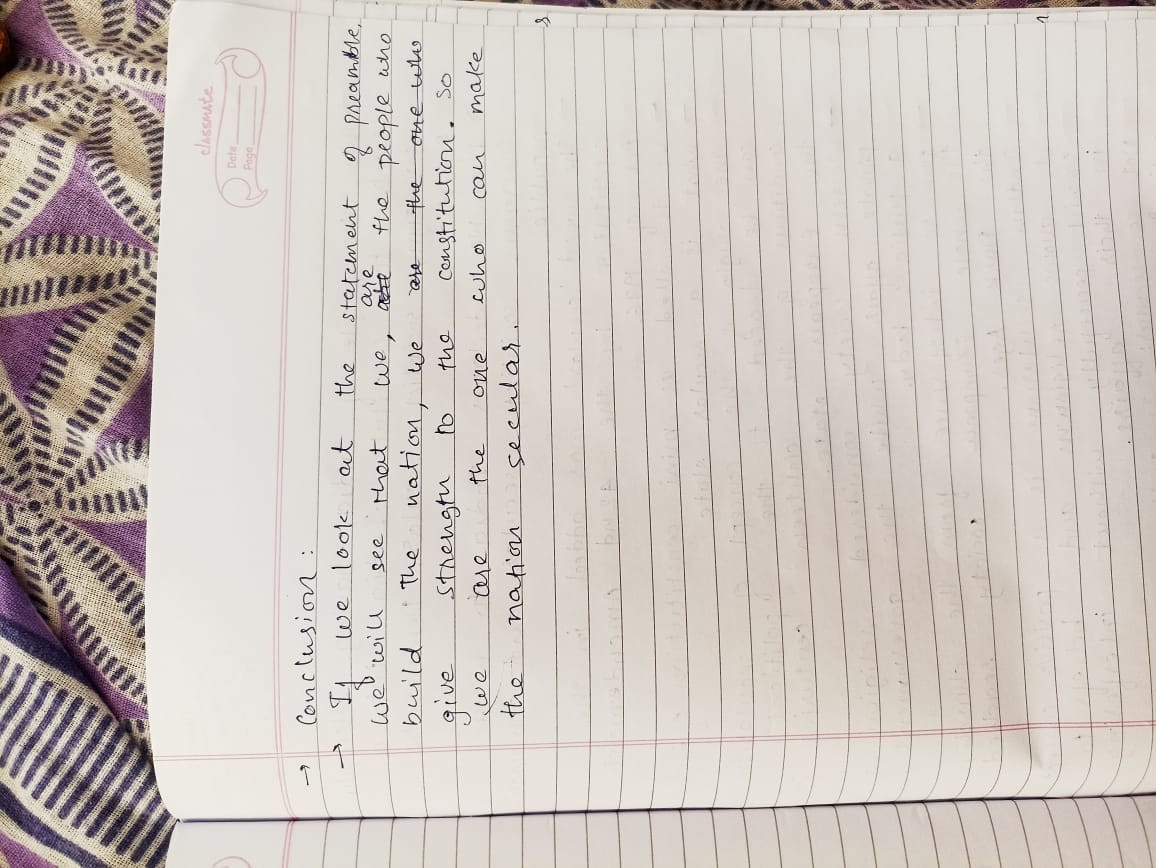 classmate
Date
Page
→ Conclusion :
→ If we look at the statement of preamble,
we will see that we, are the people who
build the nation, we are the one who
give strength to the constitution. So
we are the one who can make
the nation secular.